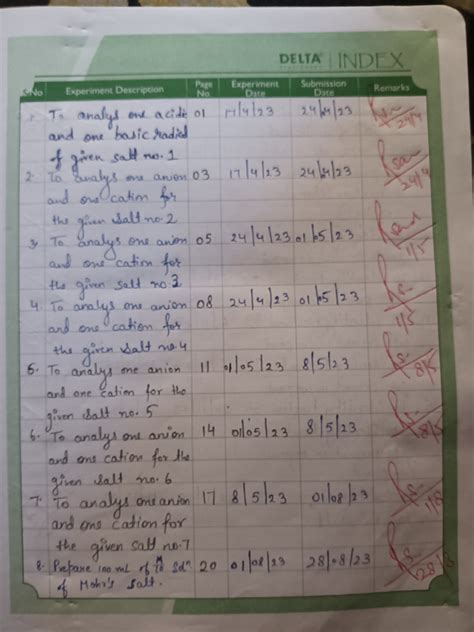 DELTA INDEX
S.No Experiment Description Page No. Experiment Date Submission Date Remarks
1. To analys one acidic 01 17/4/23 24/4/23
and one basic radical 24/4
of given salt no. 1
2. To analys one anion 03 17/4/23 24/4/23
and one cation for 24/4
the given salt no. 2
3. To analys one anion 05 24/4/23 01/05/23
and one cation for 1/5
the given salt no 3
4. To analys one anion 08 24/4/23 01/05/23
and one cation for 1/5
the given salt no. 4
5. To analys one anion 11 01/05/23 8/5/23
and one cation for the 8/5
given salt no. 5
6. To analys one anion 14 01/05/23 8/5/23
and one cation for the 8/5
given salt no. 6
7. To analys one anion 17 8/5/23 01/08/23
and one cation for 1/8
the given salt no. 7
8. Prepare 100 mL of Solⁿ 20 01/08/23 28/08/23
of Mohr's Salt. 28/8